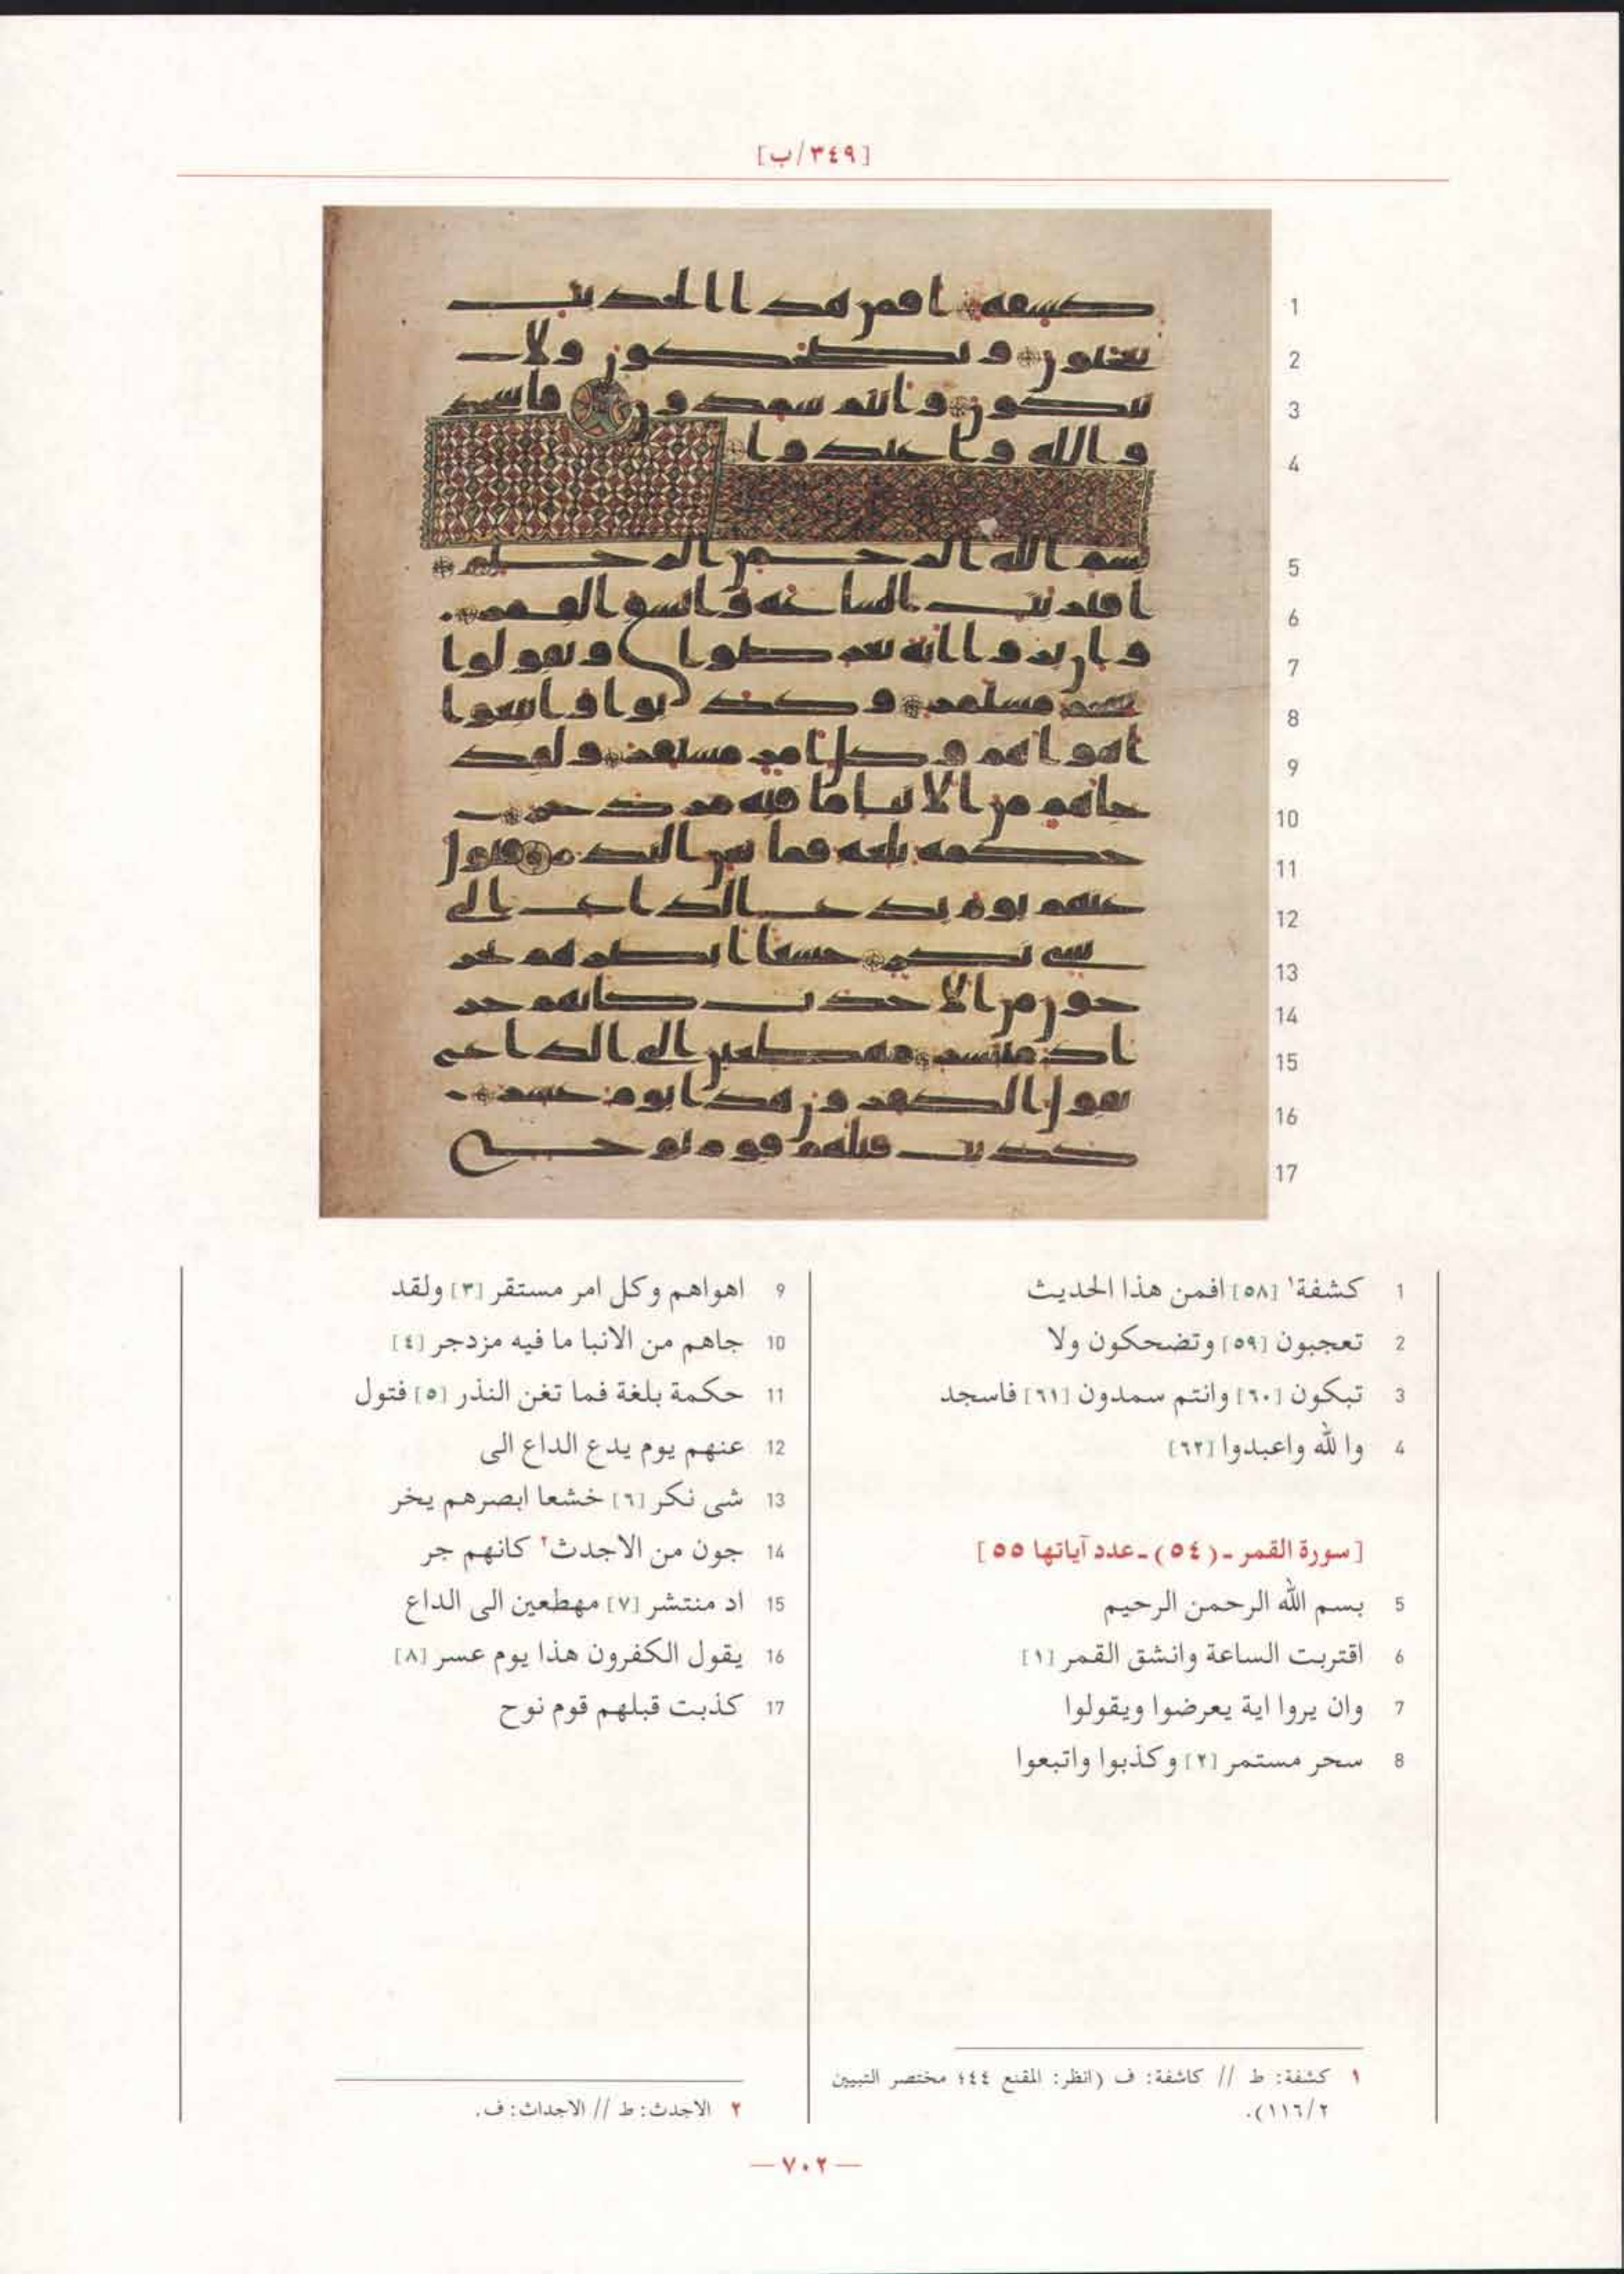 [٣٤٩/ب]
1
2
3
4
5
6
7
8
9
10
11
12
13
14
15
16
17
1 كشفة١ [٥٨] افمن هذا الحديث
2 تعجبون [٥٩] وتضحكون ولا
3 تبكون [٦٠] وانتم سمدون [٦١] فاسجد
4 وا لله واعبدوا [٦٢]
[سورة القمر ـ (٥٤) ـ عدد آياتها ٥٥]
5 بسم الله الرحمن الرحيم
6 اقتربت الساعة وانشق القمر [١]
7 وان يروا اية يعرضوا ويقولوا
8 سحر مستمر [٢] وكذبوا واتبعوا
9 اهواهم وكل امر مستقر [٣] ولقد
10 جاهم من الانبا ما فيه مزدجر [٤]
11 حكمة بلغة فما تغن النذر [٥] فتول
12 عنهم يوم يدع الداع الى
13 شى نكر [٦] خشعا ابصرهم يخر
14 جون من الاجدث٢ كانهم جر
15 اد منتشر [٧] مهطعين الى الداع
16 يقول الكفرون هذا يوم عسر [٨]
17 كذبت قبلهم قوم نوح
١ كشفة: ط // كاشفة: ف (انظر: المقنع ٤٤؛ مختصر التبيين
١١٦/٢).
٢ الاجدث: ط // الاجداث: ف.
— ٧٠٢ —